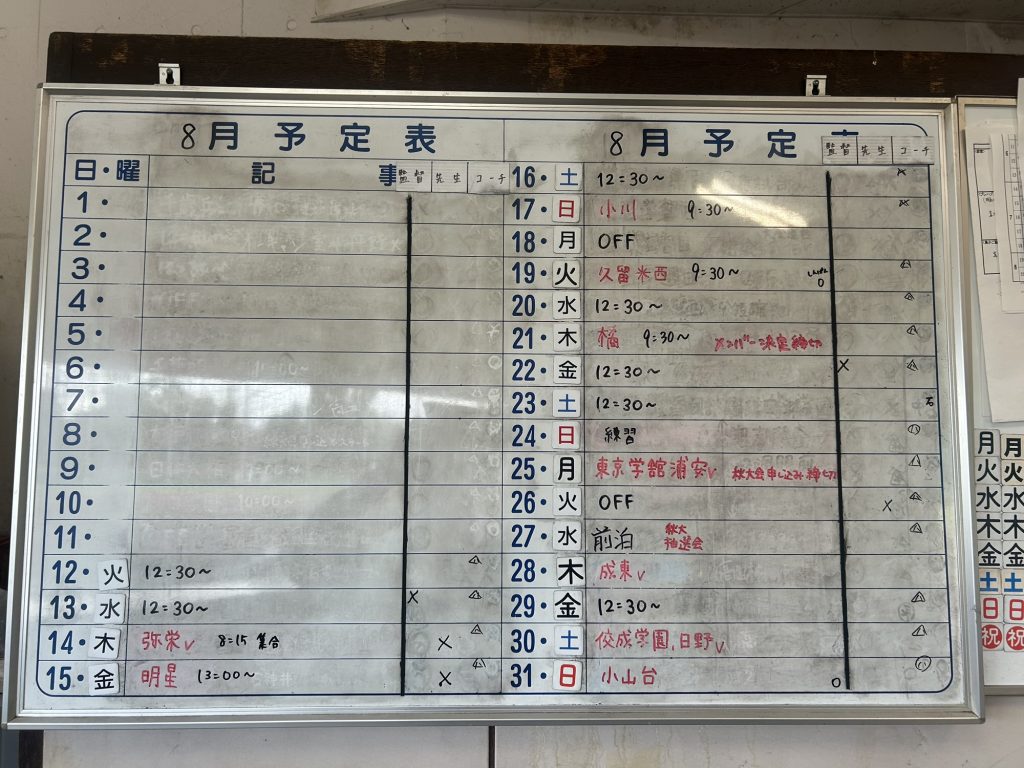 8月予定表
日・曜 記事 監督 先生 コーチ
1・
2・
3・
4・
5・
6・
7・
8・
9・
10・
11・
12・火 12:30〜 △
13・水 12:30〜 × △
14・木 弥栄v 8:15 集合 × △
15・金 明星 13:00〜 × △
8月予定 監督 先生 コーチ
16・土 12:30〜 ×
17・日 小川 9:30〜
18・月 OFF
19・火 久留米西 9:30〜 △
20・水 12:30〜 △
21・木 橘 9:30〜 メンバー決定締切 △
22・金 12:30〜 × △
23・土 12:30〜
24・日 練習
25・月 東京学館浦安v 秋大会申し込み締切 △
26・火 OFF × △
27・水 前泊 秋大抽選会 △
28・木 成東v
29・金 12:30〜 △
30・土 佼成学園,日野v △
31・日 小山台 ○
月 月
火 火
水 水
木 木
金 金
土 土
日 日
祝 祝